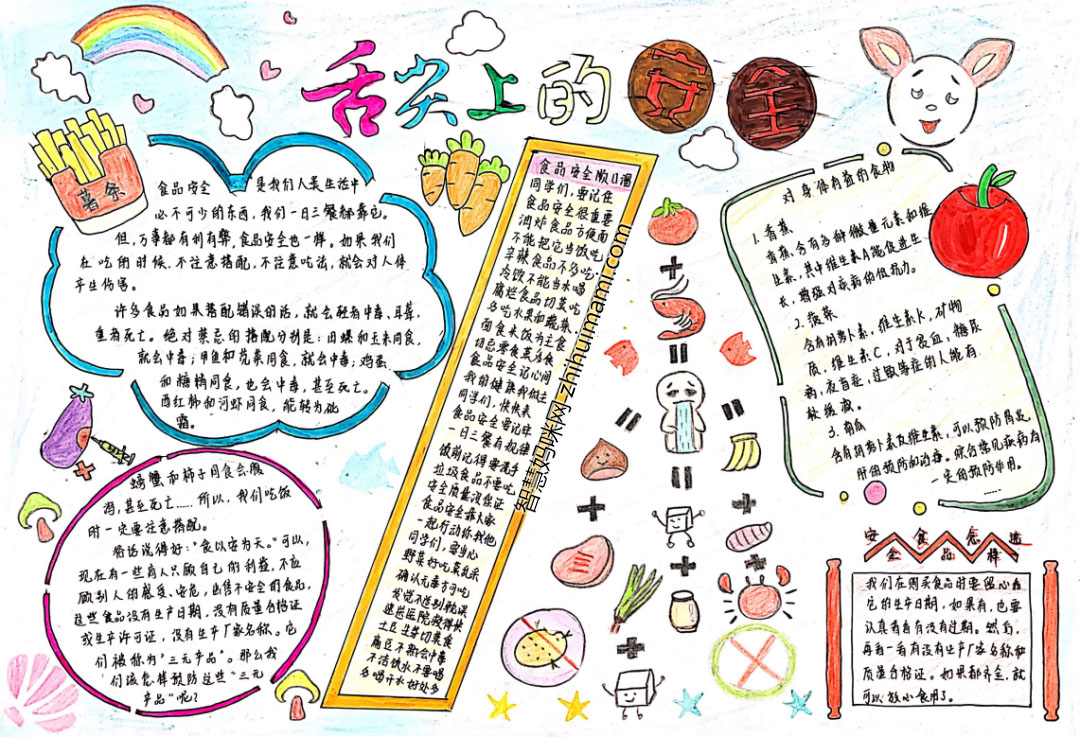 舌尖上的安全
薯条
食品安全 是我们人类生活中
必不可少的东西,我们一日三餐都靠它。
但,万事都有利有弊,食品安全也一样。如果我们
在吃的时候,不注意搭配,不注意吃法,就会对人体
产生伤害。
许多食品如果搭配错误的话,就会轻者中毒、耳聋,
重者死亡。绝对禁忌的搭配分别是:田螺和玉米同食,
就会中毒;甲鱼和苋菜同食,就会中毒;鸡蛋
和糖精同食,也会中毒,甚至死亡。
西红柿和河虾同食,能转为砒
霜。
螃蟹和柿子同食会腹
泻,甚至死亡……所以,我们吃饭
时一定要注意搭配。
俗话说得好:"食以安为天。"可以,
现在有一些商人只顾自己的利益,不应
顾别人的感受、安危,出售不安全的食品,
这些食品没有生产日期,没有质量合格证
或生产许可证,没有生产厂家名称。它
们被称为"三无产品"。那么我
们该怎样预防这些"三无
产品"呢?
食品安全顺口溜
同学们,要记住
食品安全很重要
油炸食品方便面
不能把它当饭吃
辛辣食品不多吃
冷饮不能当水喝
腐烂食品切莫吃
多吃水果和蔬菜
面食米饭为主食
切忌零食莫多食
食品安全记心间
我的健康我做主
同学们,快快来
食品安全要记牢
一日三餐有规律
饭前记得要洗手
垃圾食品不要吃
安全质量没保证
食品安全靠大家
一起行动你我他
同学们,要当心
野菜好吃莫乱采
确认无毒才可吃
发觉不适别耽误
速送医院救得快
土豆生芽切莫食
扁豆不熟会中毒
不洁饮水不要喝
多喝开水好处多
智慧妈咪网 zhihuimami.com
对身体有益的食物
1. 香蕉
香蕉,含有多种微量元素和维
生素,其中维生素A能促进生
长,增强对疾病的抵抗力。
2. 菠菜
含有胡萝卜素,维生素K,矿物
质,维生素C,对于贫血,糖尿
病,夜盲症,过敏等症的人能有
效缓减。
3. 南瓜
含有胡萝卜素及维生素,可以预防胃炎,
肝的预防和治毒。综合常见疾病有
一定的预防作用。
……
安全食品怎样选
我们在购买食品时要留心看
它的生产日期,如果有,也要
认真看看有没有过期。然后,
再看一看有没有生产厂家名称和
质量合格证。如果都齐全,就
可以放心食用了。